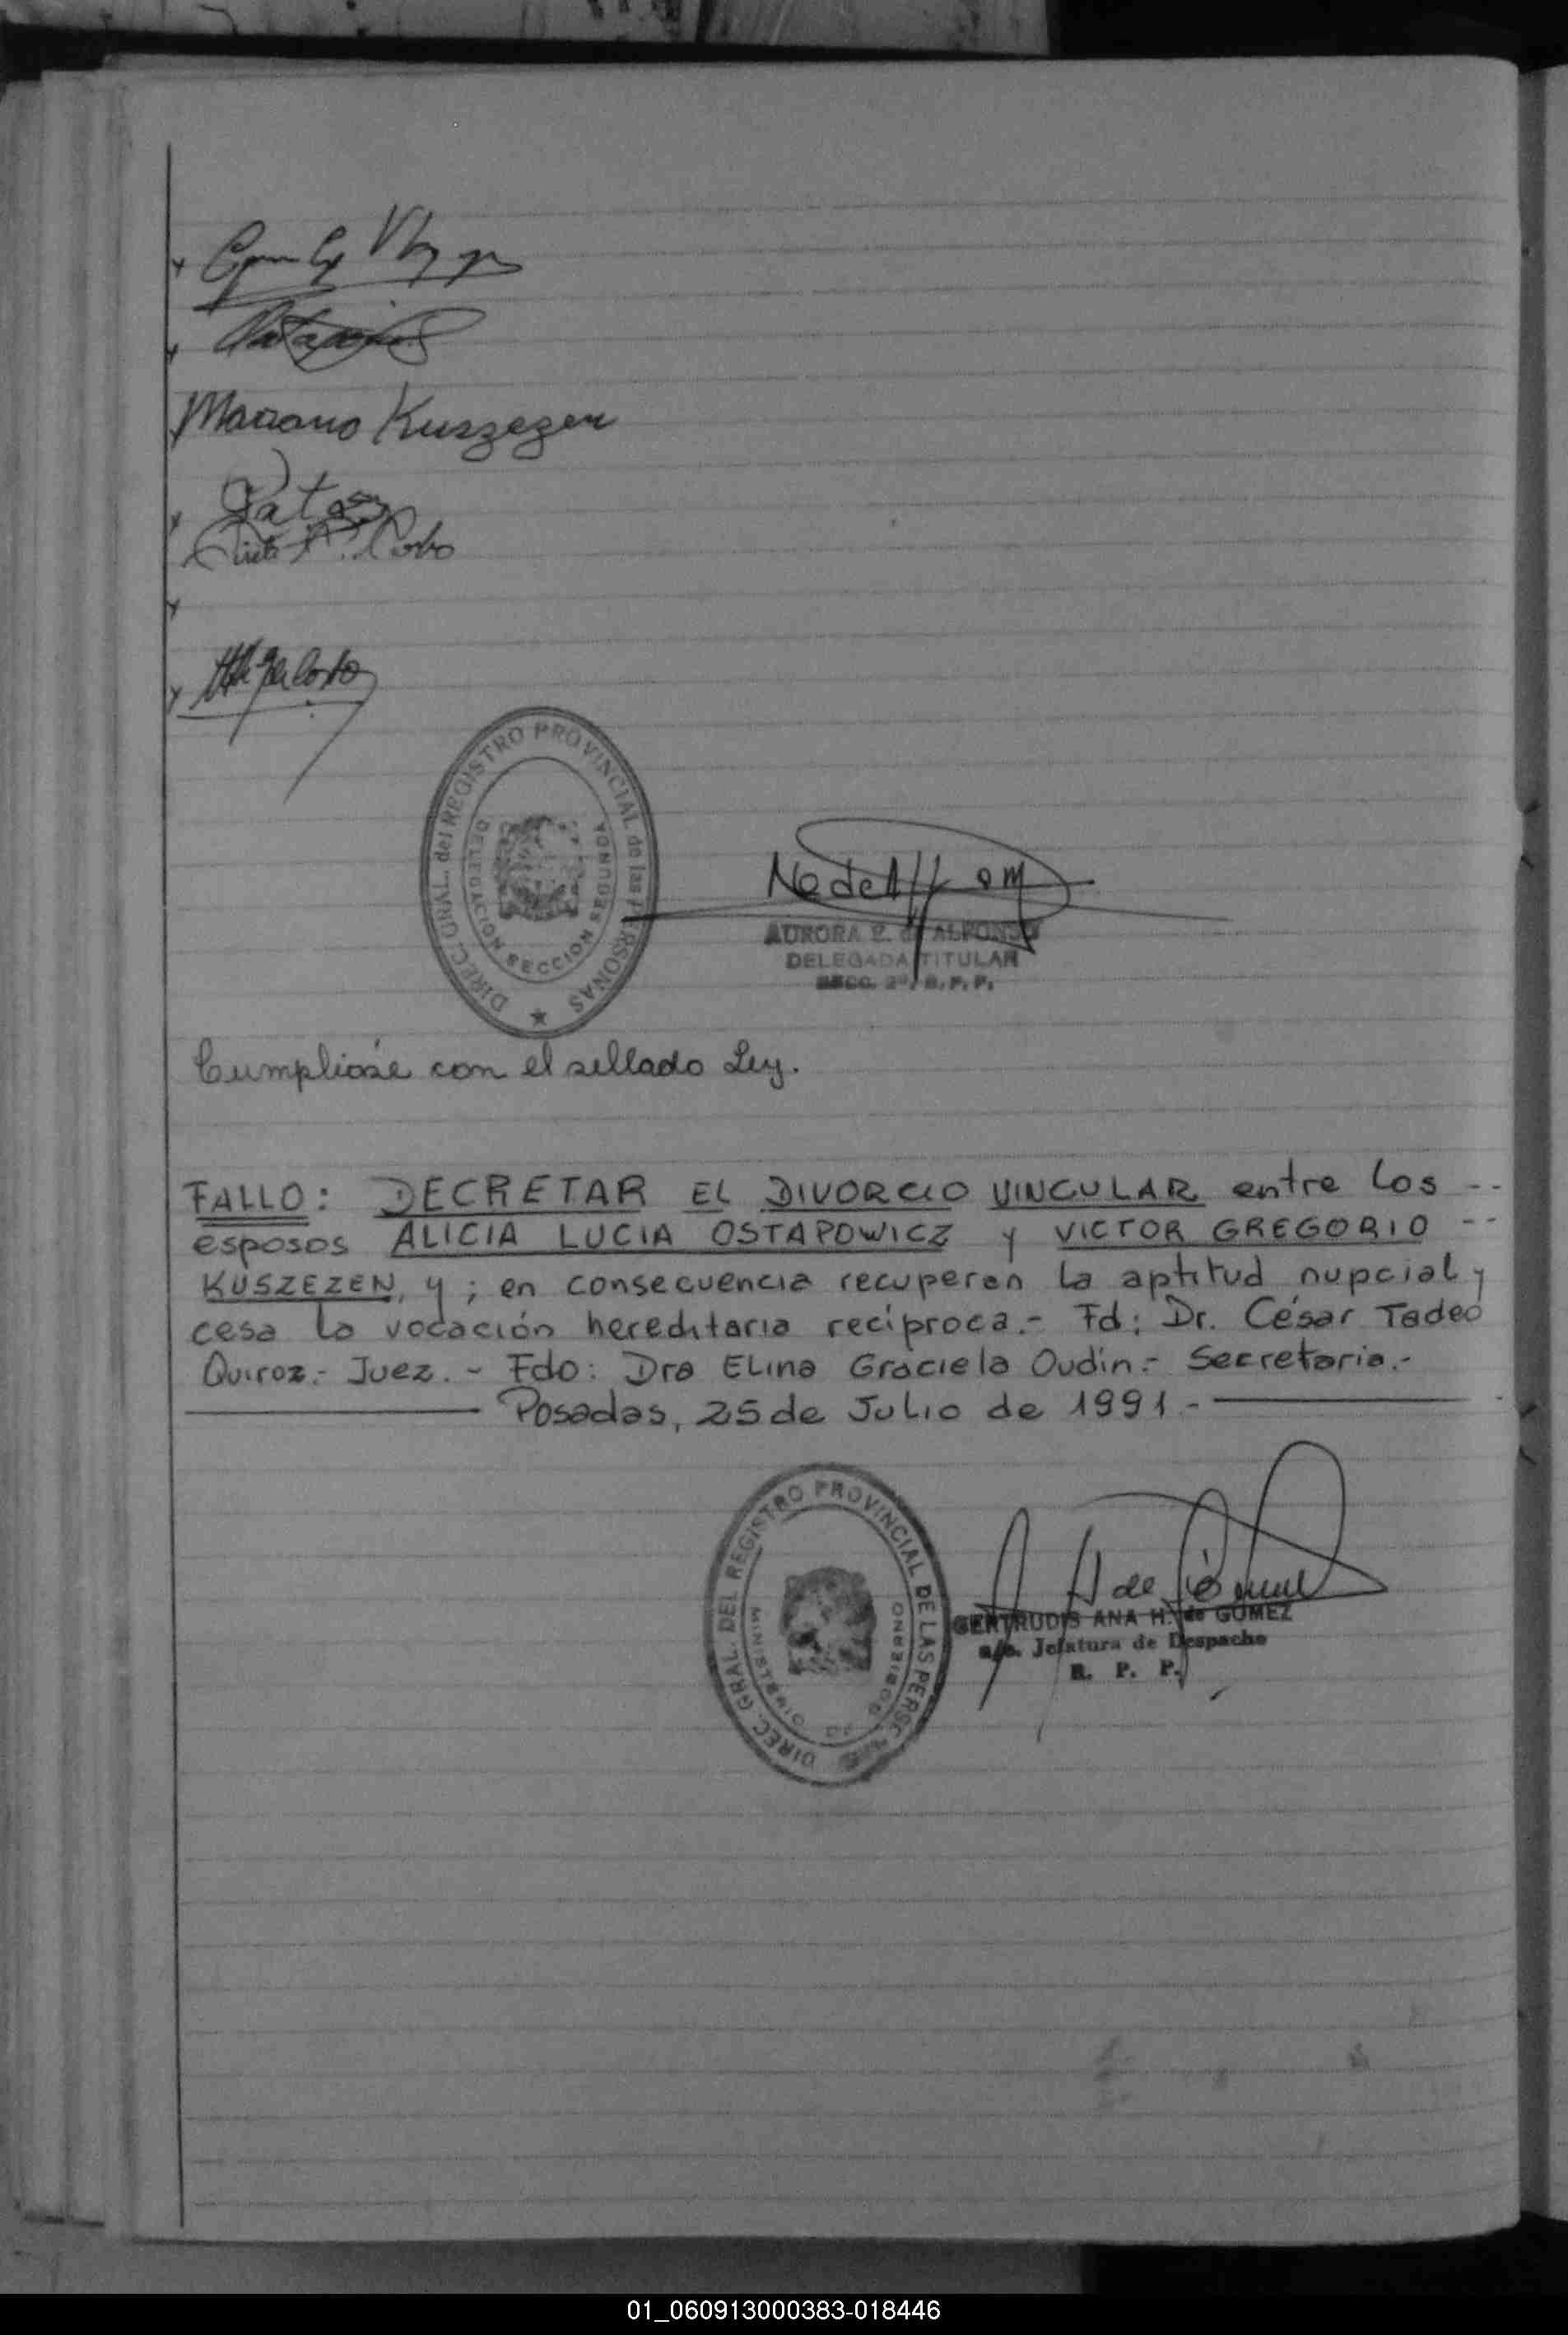 Mariano Kuszezen
DIREC. GRAL. del REGISTRO PROVINCIAL de las PERSONAS
DELEGACION SECCION SEGUNDA
AURORA de ALFONSO
DELEGADA TITULAR
SECC. 2ª R. P. P.
Cumplióse con el sellado Ley.
FALLO: DECRETAR EL DIVORCIO VINCULAR entre los --
esposos ALICIA LUCIA OSTAPOWICZ y VICTOR GREGORIO --
KUSZEZEN, y ; en consecuencia recuperan la aptitud nupcial y
cesa la vocación hereditaria recíproca.- Fd: Dr. César Tadeo
Quiroz.- Juez. - Fdo: Dra Elina Graciela Oudín.- Secretaria.-
Posadas, 25 de Julio de 1991.-
DIREC. GRAL. DEL REGISTRO PROVINCIAL DE LAS PERSO
MINISTERIO DE GOBIERNO
GERTRUDIS ANA H. de GOMEZ
a/c. Jefatura de Despacho
R. P. P.
01_060913000383-018446